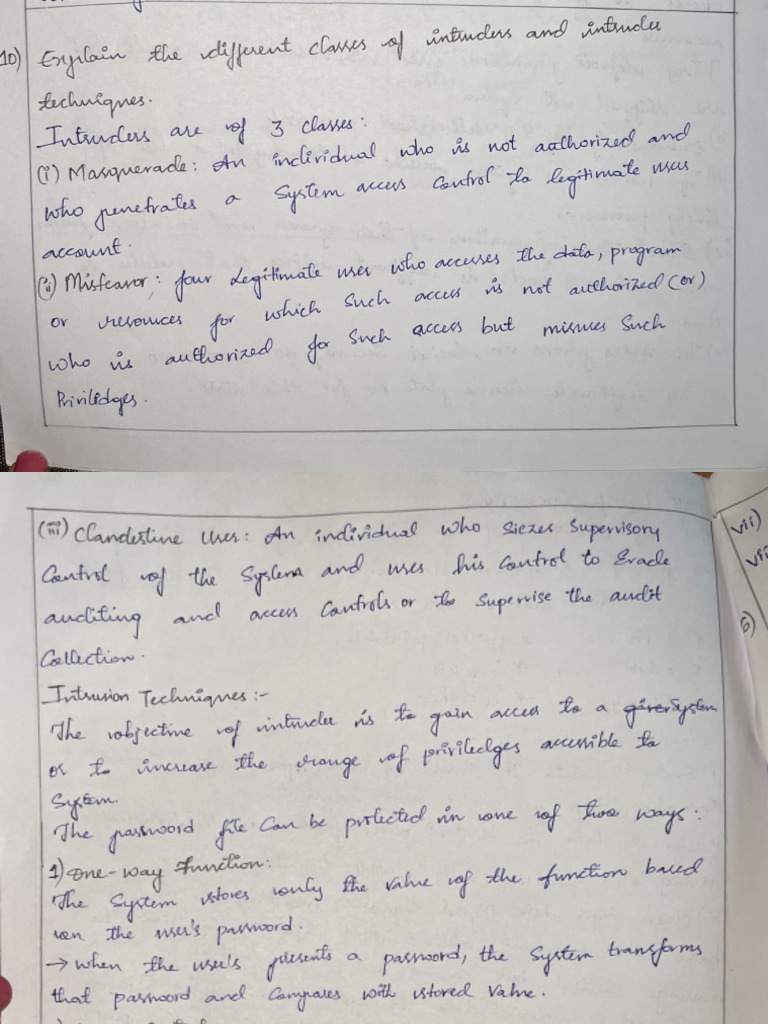 10) Explain the different classes of intruders and intruder
techniques.
Intruders are of 3 classes:
(i) Masquerade: An individual who is not authorized and
who penetrates a system access control to legitimate users
account.
(ii) Misfeavor: four Legitimate user who accesses the data, program
or resources for which such access is not authorized (or)
who is authorized for such access but misuses such
Priviledges.
(iii) Clandestine User: An individual who siezes supervisory
Control of the System and uses his control to Evade
auditing and access Controls or to supervise the audit
Collection.
Intrusion Techniques:-
The objective of intruder is to gain access to a system
or to increase the range of priviledges accessible to
System.
The password file can be protected in one of two ways:
1) One-way Function:
The System stores only the value of the function based
on the user's password.
→ when the user's presents a password, the system transforms
that password and Compares with stored value.
vii)
6)